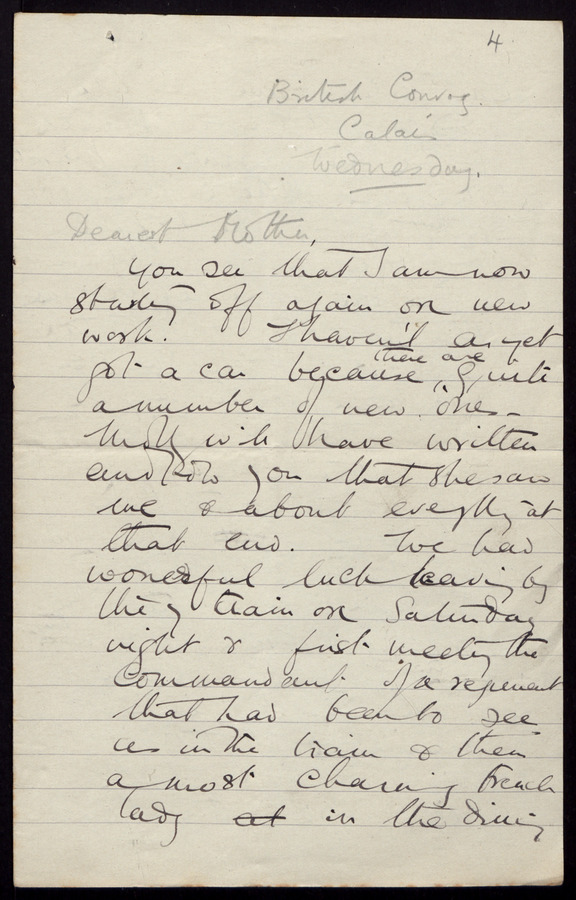 4
British Convoy.
Calais
Wednesday.
Dearest Mother,
You see that I am now
starting off again on new
work. I haven't as yet
got a car because there are quite
a number of new ones -
Molly will have written
and told you that she saw
me & about everything at
that end. We had
wonderful luck leaving by
the 7 train on Saturday
night & first meeting the
Commandant of a regiment
that had been to see
us in the train & then
a most charming French
lady at in the dining